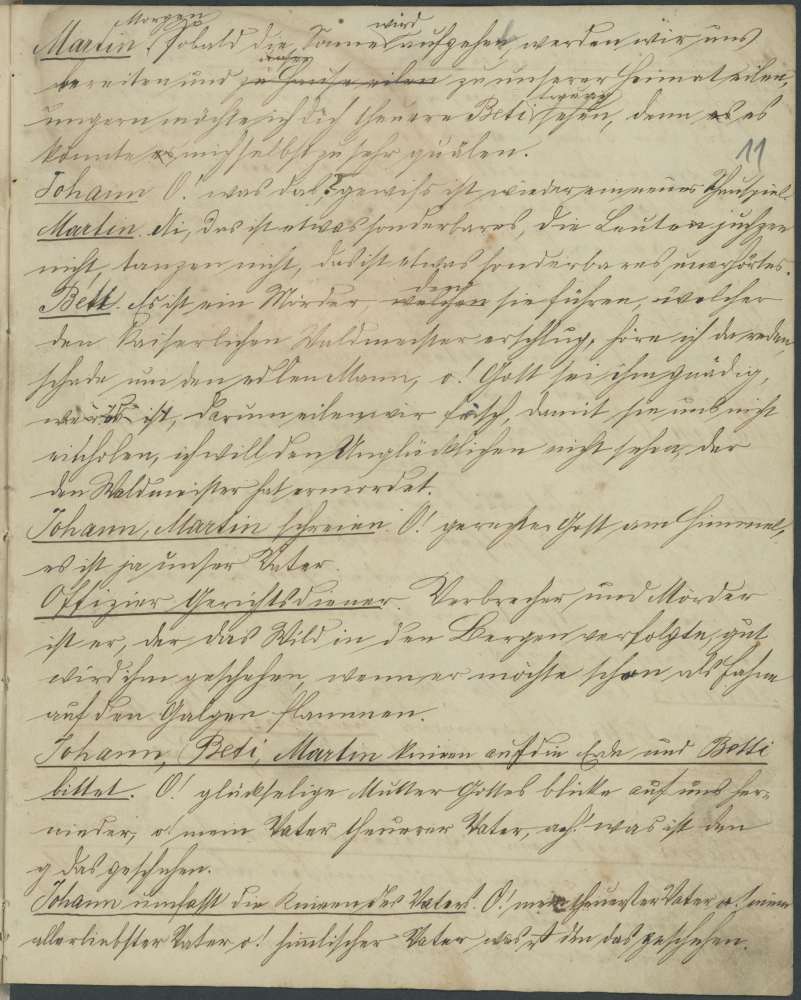 Morgen wird
Martin. Sobald die Sonne aufgehen, werden wir uns
bereiten und zu Hause eilen zu unserer Heimat eilen,
ungern möchte ich dich theuere Beti sehen, denn es
könnte mich selbst zu sehr quälen.
11
Johann O! was das? gewiß ist wieder ein neues Schauspiel.
Martin. Ai, das ist etwas sonderbares, die Leute juchzen
nicht, tanzen nicht, das ist etwas sonderbares unerhörtes.
Betti. Es ist ein Mörder, welchen sie führen, welcher
den Kaiserlichen Waldmeister erschlug, höre ich da reden,
schade um den edlen Mann, o! Gott sei ihm gnädig,
ist, darum eilen wir, damit sie uns nicht
einholen, ich will den Unglücklichen nicht sehen, der
den Waldmeister hat ermordet.
Johann, Martin schreien. O! gerechter Gott am Himmel,
es ist ja unser Vater.
Offizier Gerichtsdiener. Verbrecher und Mörder
ist er, der das Wild in den Bergen verfolgte, gut
wird ihm geschehen, wenn er möchte schon als Fahne
auf den Galgen flammen.
Johann, Beti, Martin knieen auf die Erde und Betti
bittet. O! glückselige Mutter Gottes blicke auf uns her-
nieder, o! mein Vater theuerer Vater, ach! was ist den
das geschehen.
Johann umfasst die Knieen des Vaters. O! mein theuerster Vater o! mein
allerliebster Vater o! himmlischer Vater was ist den das geschehen.